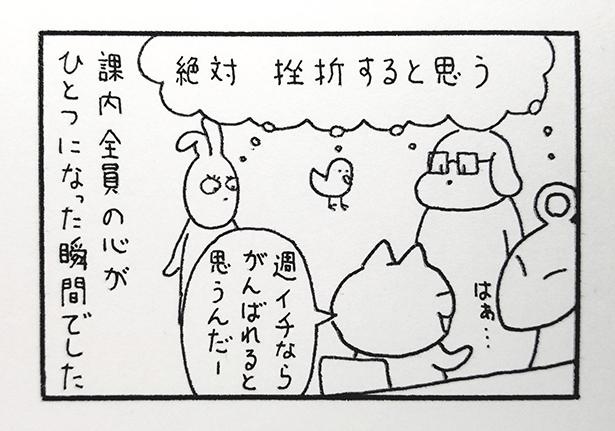 絶対 挫折すると思う
はぁ…
週イチなら
がんばれると
思うんだー
課内全員の心が
ひとつになった瞬間でした